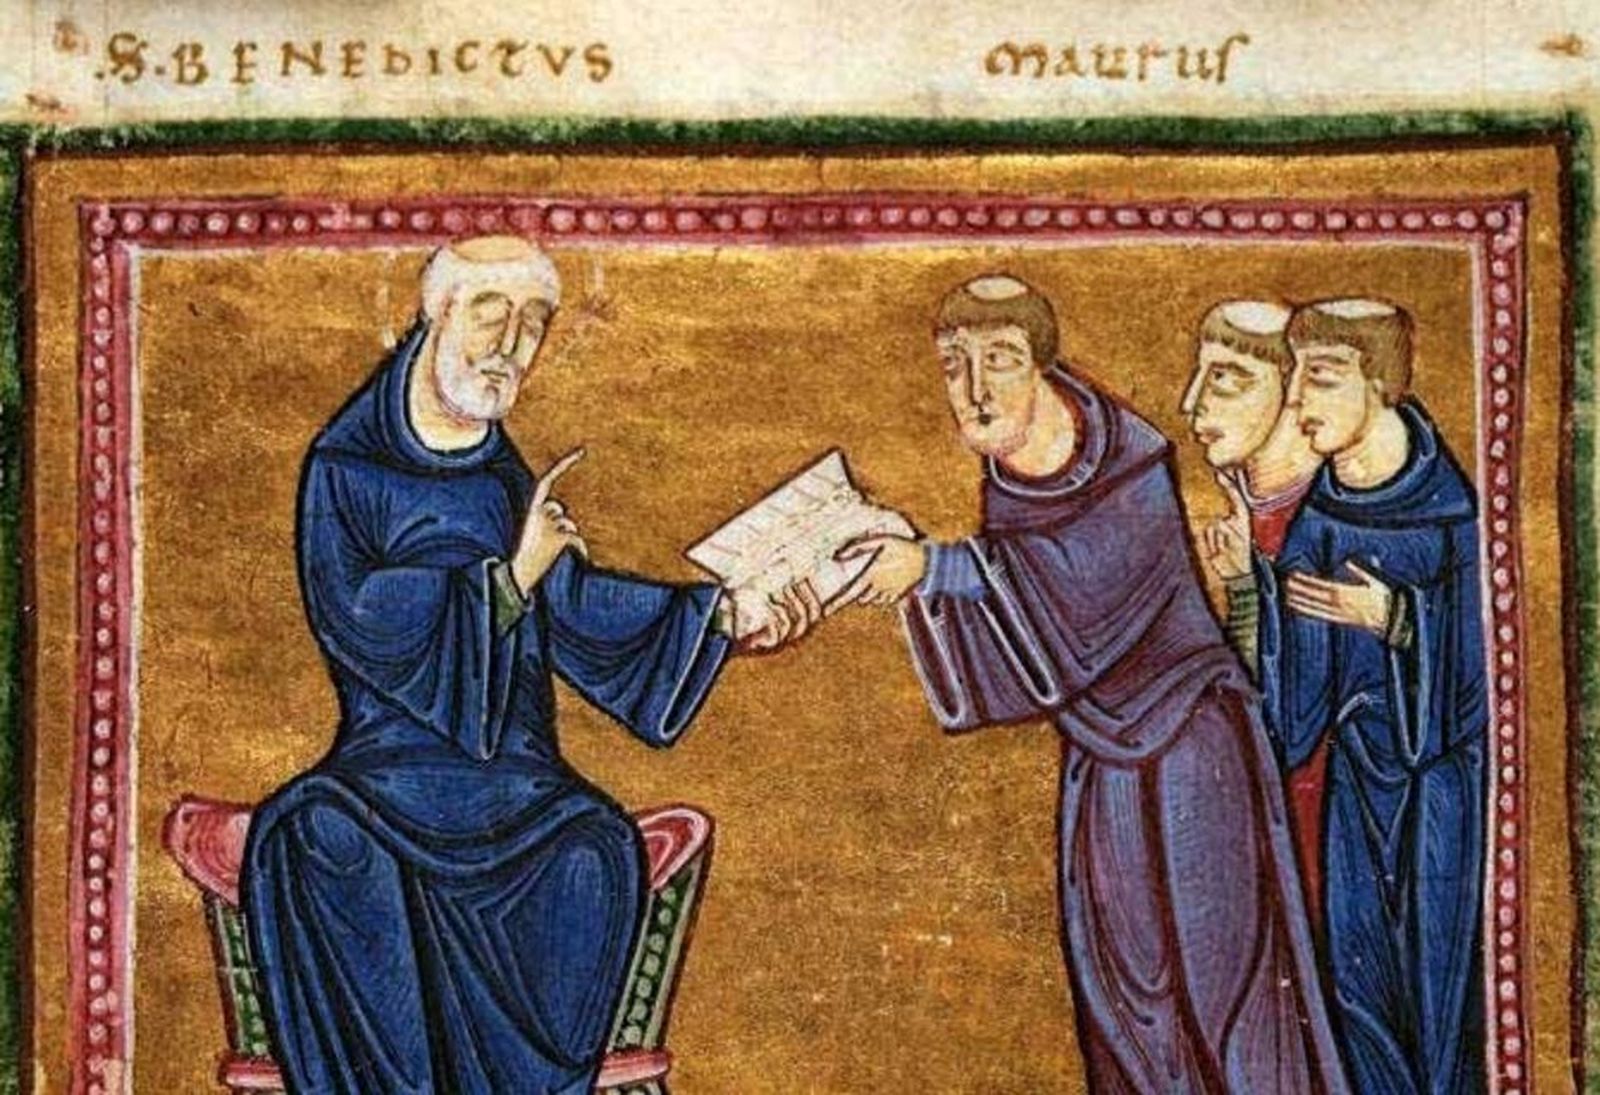 .S.BENEDICTVS maurus